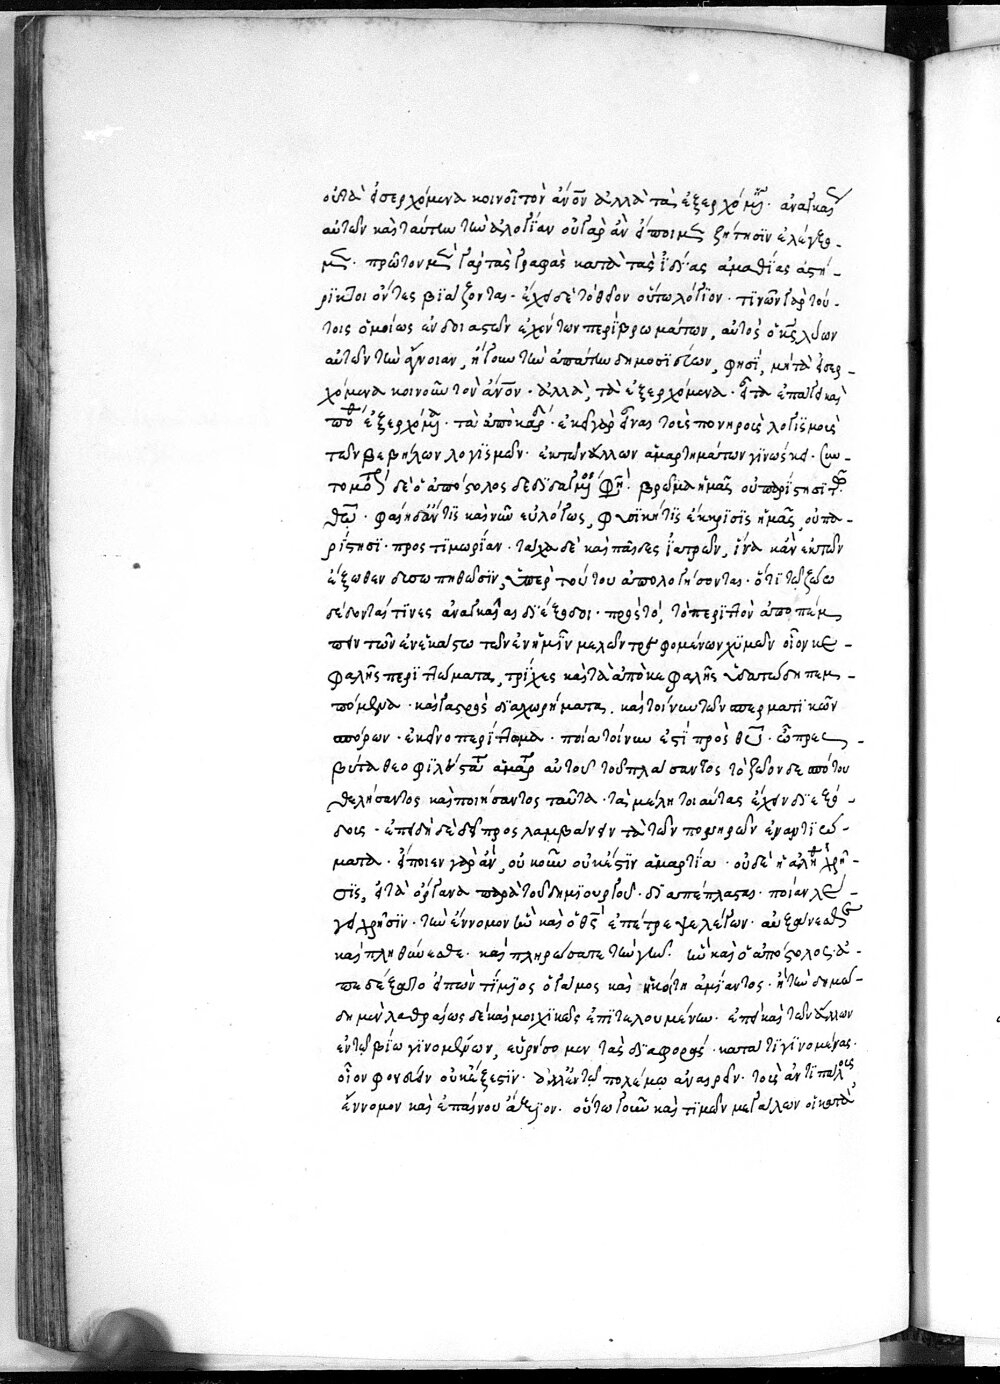 οὐ τὰ εἰσερχόμενα κοινοῖ τὸν ἄνον ἀλλὰ τὰ ἐξερχόμενα. ἀναγκαῖ
αὐτῶν καὶ ταύτην τὴν ἀλογίαν οὐ γὰρ ἂν εἴποιμεν ζήτησϊν ἐλέγξο-
μεν. πρῶτον μὲν γὰρ τὰς γραφὰς κατὰ τὰς ἰδίας ἀμαθίας ἀστή-
ρϊκτοι ὄντες βϊάζονται. ἔχει δὲ τὸ θεῖον οὕτω λόγϊον. τϊνῶν γὰρ τού-
τοις ὁμοίως ἐνδοιαστῶν ἐχόντων περὶ βρωμάτων, αὐτὸς ὁ κς λύων
αὐτῶν τὴν ἄνοιαν, ἤγουν τὴν ἀπάτην δημοσϊεύων, φησὶ, μὴ τὰ εἰσερ-
χόμενα κοινοῦν τὸν ἄνον. ἀλλὰ, τὰ ἐξερχόμενα. εἶτα ἐπάγει καὶ
ποῖα ἐξερχόμενα. τὰ ἀπὸ καρδίας. ἐκεῖ γὰρ εἶναι τοὺς πονηροὺς λογϊσμοὺς
τῶν βεβήλων λογϊσμῶν. ἐκ τῶν ἄλλων ἁμαρτημάτων γϊνώσκει. συν-
τομώτερον δὲ ὁ ἀπόστολος δεδϊδαγμένος φησὶ. βρῶμα ἡμᾶς οὐ παρίστησϊ τῷ
θεῷ. φαίη δ' ἄν τϊς καὶ νῦν εὐλόγως, φυσϊκή τϊς ἔκκρϊσϊς ἡμᾶς, οὐ πα-
ρίστησϊ. πρὸς τϊμωρίαν. τάχα δὲ καὶ παῖδες ἰατρῶν, ἵνα κἂν ἐκ τῶν
ἔξωθεν δυσωπηθῶσϊν, ὑπὲρ τούτου ἀπολογήσονται. ὅτϊ τῷ ζώω
δέδονταί τϊνες ἀναγκαῖαι δϊέξοδοι. πρὸς τὸ, τὸ περϊττὸν ἀποπέμ-
πειν τῶν ἐν ἑκάστω τῶν ἐν ἡμῖν μελῶν τρεφομένων χϋμῶν οἷον κε-
φαλῆς περϊττώματα, τρίχες καὶ τὰ ἀπὸ κεφαλῆς ὑδατώδη πεμ-
πόμενα. καὶ γαστρὸς δϊαχωρήματα. καὶ τοίνυν τῶν σπερματϊκῶν
πόρων. ἐκεῖνο περίττωμα. ποία τοίνυν ἐστὶ πρὸς θεοῦ. ὦ πρεσ-
βῦται θεοφϊλέσταται ἁμαρτία αὐτοῦ τοῦ πλάσαντος τὸ ζῶον δεσπότου
θελήσαντος καὶ ποιήσαντος ταῦτα. τὰ μέλη τοιαύτας ἔχειν δϊεξό-
δους. ἐπειδὴ δὲ δεῖ προσλαμβάνειν τὰ τῶν πονηρῶν ἐναντϊώ-
ματα. εἴποιεν γὰρ ἂν, οὐκοῦν οὐκ ἔστϊν ἁμαρτία. οὐδὲ ἡ ἀληθὴς χρῆ-
σϊς, εἰ τὰ ὄργανα παρὰ τοῦ δημϊουργοῦ. δϊαπέπλασται. ποίαν λέ-
γει χρῆσϊν. τὴν ἔννομον ἣν καὶ ὁ θς ἐπέτρεψε λέγων. αὐξάνεσθε
καὶ πληθύνεσθε. καὶ πληρώσατε τὴν γῆν. ἣν καὶ ὁ ἀπόστολος ἀ-
πεδέξατο εἰπὼν τίμϊος ὁ γάμος καὶ ἡ κοίτη ἀμϊάντος. ἢ τὴν δημώ-
δη μὲν λαθραίως δὲ καὶ μοιχϊκῶς ἐπϊτελουμένην. ἐπεὶ καὶ τῶν ἄλλων
ἐν τῷ βίω γϊνομένων, εὑρήσομεν τὰς δϊαφορὰς. κατά τϊ γϊνομένας.
οἷον φονεύειν οὐκ ἔξεστϊν. ἀλλ' ἐν τῷ πολέμω ἀναιρεῖν. τοὺς ἀντϊπάλους
ἔννομον καὶ ἐπαίνου ἄξϊον. οὕτω γοῦν καὶ τϊμῶν μεγάλων οἱ κατὰ